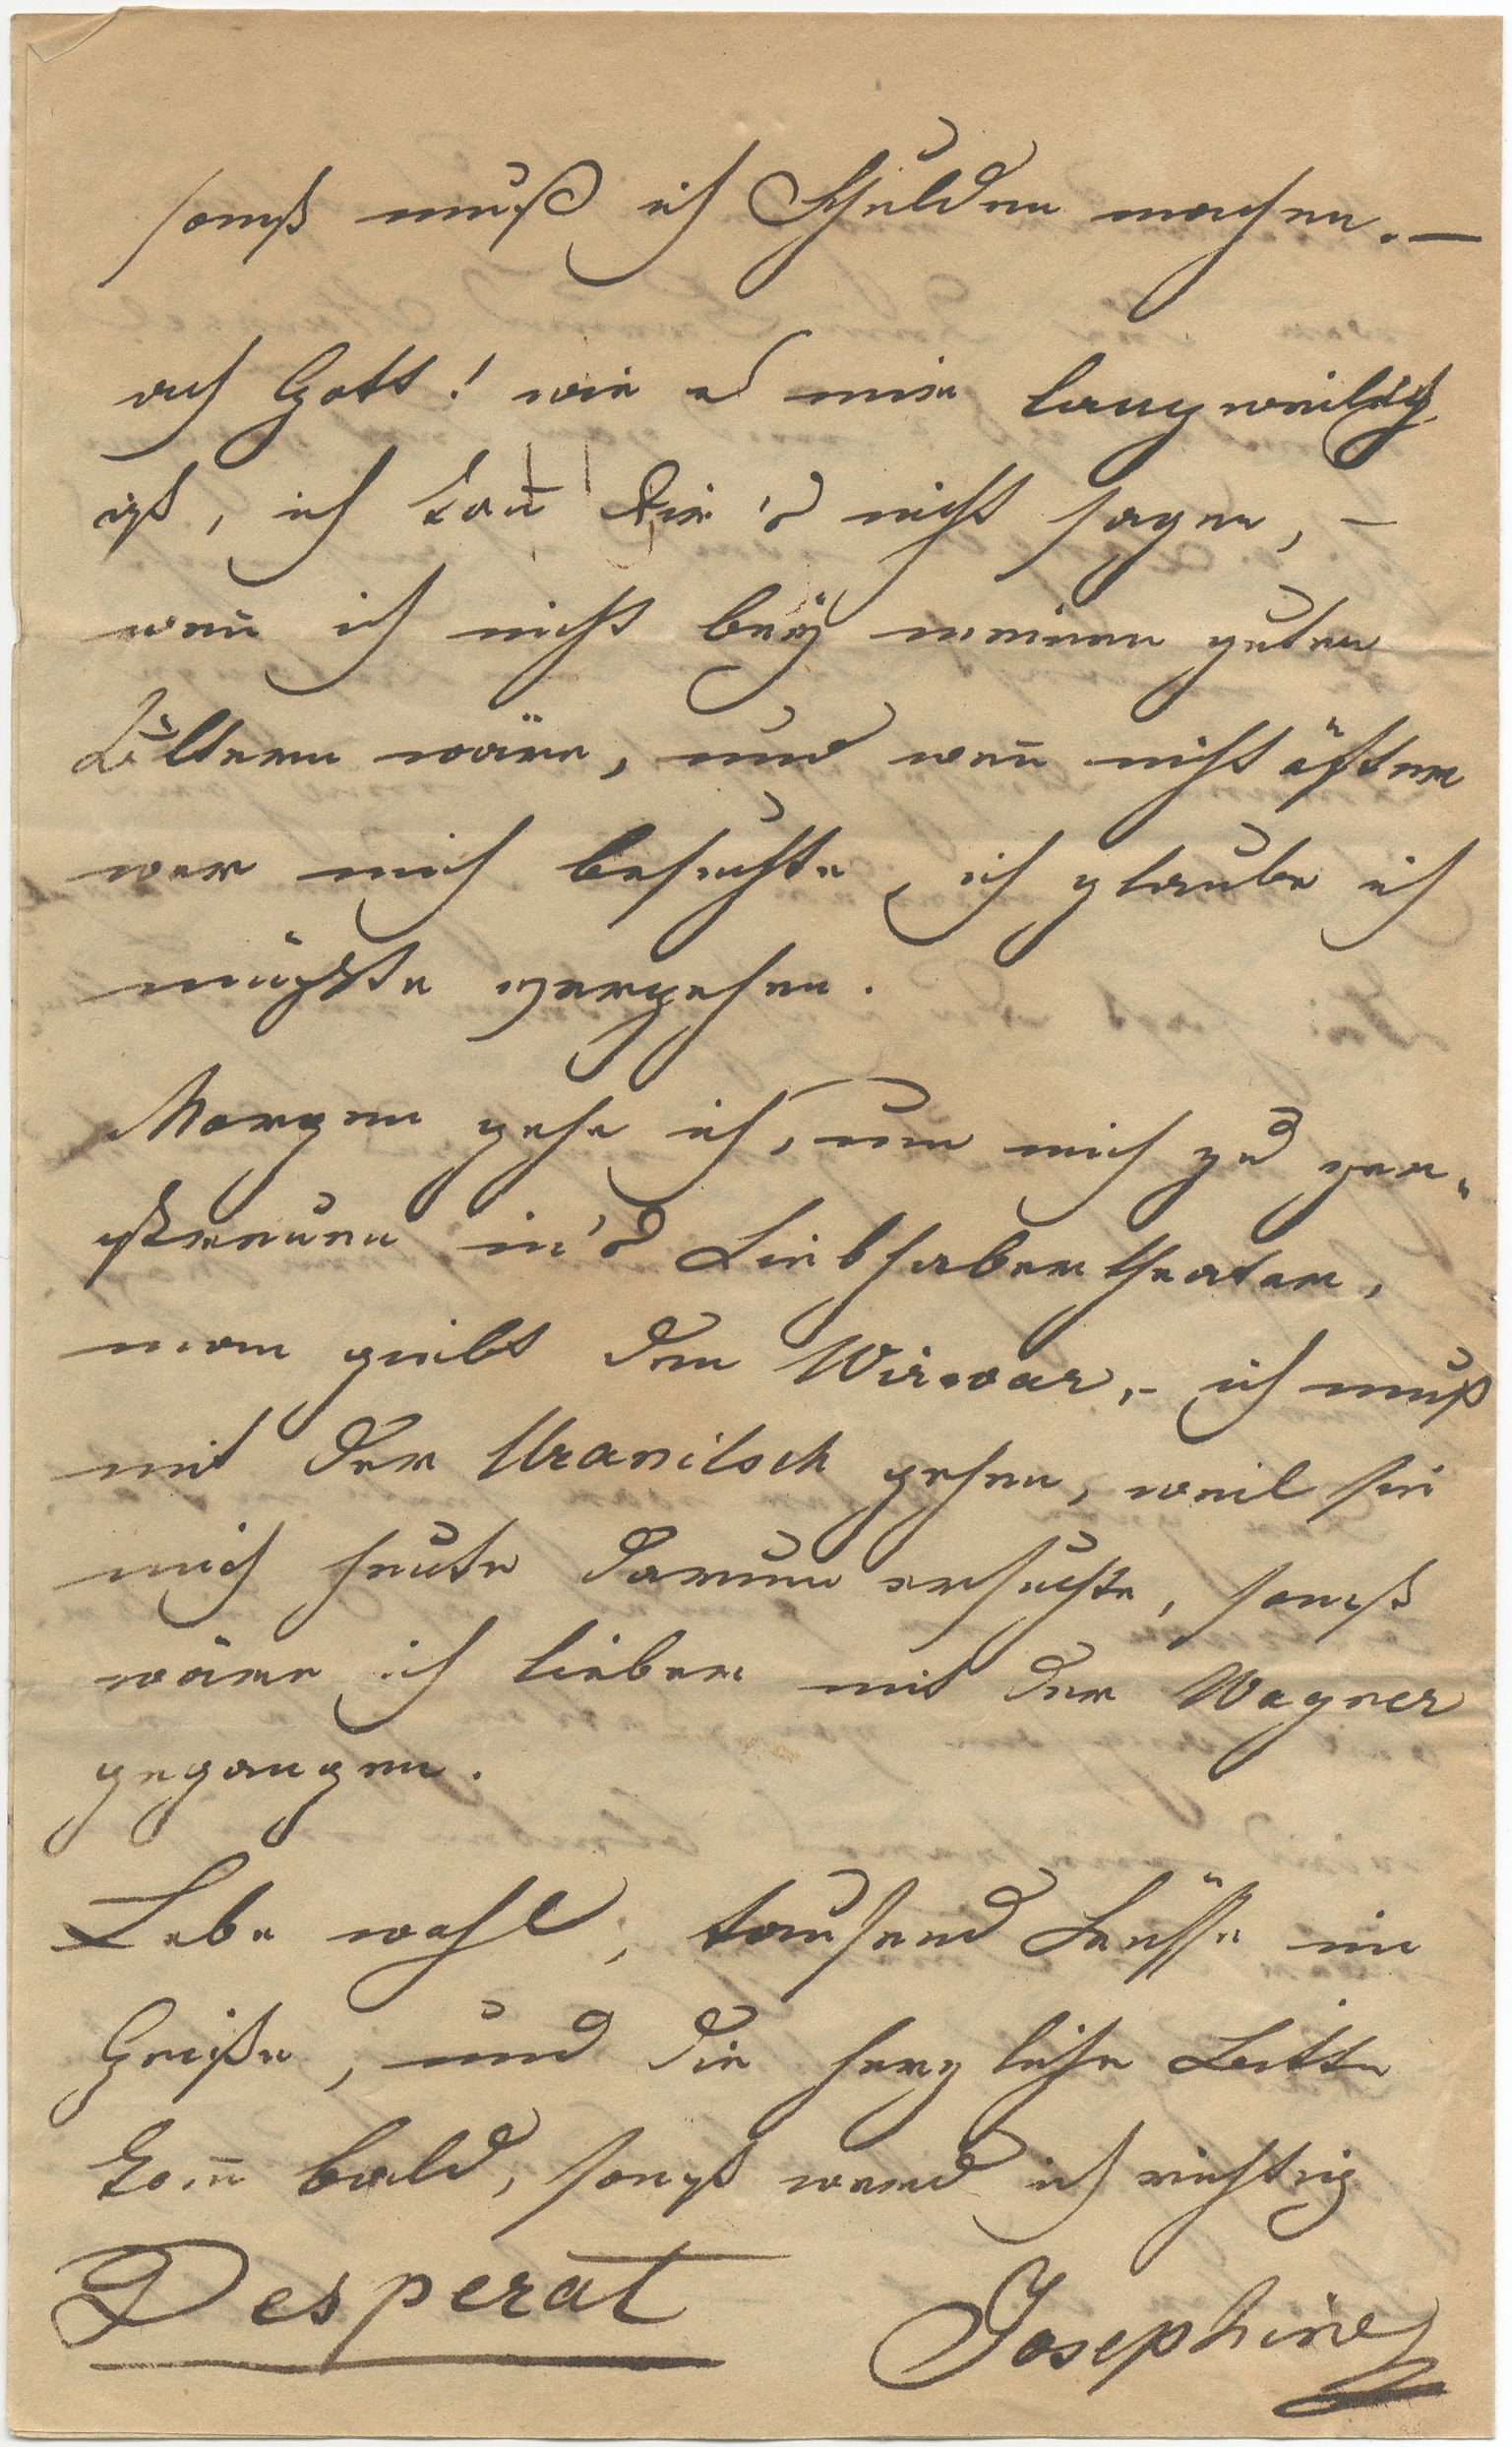 sonst muß ich Schulden machen. —
ach Gott! wie es mir langweilig
ist, ich kan̅ Dir's nicht sagen, —
wen̅ ich nicht beÿ meinen guten
Ältern wäre, und wen̅ nicht öfter
wer mich besuchte, ich glaube ich
müßte vergehen.
Morgen gehe ich, um mich zu zer„
streuen in's Liebhabertheater,
man giebt den Wirwar, – ich muß
mit der Uranitsch gehen, weil sie
mich heute darum ersuchte, sonst
wäre ich lieber mit der Wagner
gegangen.
Lebe wohl, tausend Küsse im
Geiste, und die herzliche Bitte
kom̅ bald, sonst werd ich richtig
Desperat Josephine